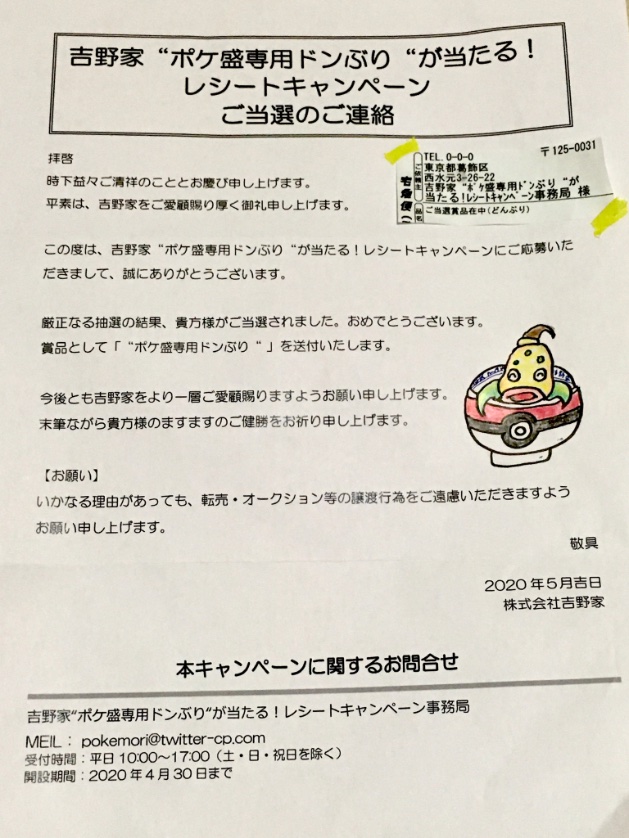 吉野家 “ポケ盛専用ドンぶり “が当たる！
レシートキャンペーン
ご当選のご連絡
拝啓
時下益々ご清祥のこととお慶び申し上げます。
平素は、吉野家をご愛顧賜り厚く御礼申し上げます。
〒125-0031
TEL. 0-0-0
東京都葛飾区
西水元3-26-22
吉野家 “ポケ盛専用ドンぶり “が
当たる！レシートキャンペーン事務局 様
ご依頼主
宅急便
品名
ご当選賞品在中(どんぶり)
この度は、吉野家 “ポケ盛専用ドンぶり “が当たる！レシートキャンペーンにご応募いた
だきまして、誠にありがとうございます。
厳正なる抽選の結果、貴方様がご当選されました。おめでとうございます。
賞品として「 “ポケ盛専用ドンぶり “ 」を送付いたします。
今後とも吉野家をより一層ご愛顧賜りますようお願い申し上げます。
末筆ながら貴方様のますますのご健勝をお祈り申し上げます。
【お願い】
いかなる理由があっても、転売・オークション等の譲渡行為をご遠慮いただきますよう
お願い申し上げます。
敬具
2020 年５月吉日
株式会社吉野家
本キャンペーンに関するお問合せ
吉野家“ポケ盛専用ドンぶり“が当たる！レシートキャンペーン事務局
MEIL： pokemori@twitter-cp.com
受付時間：平日 10:00～17:00（土・日・祝日を除く）
開設期間：2020 年 4 月 30 日まで